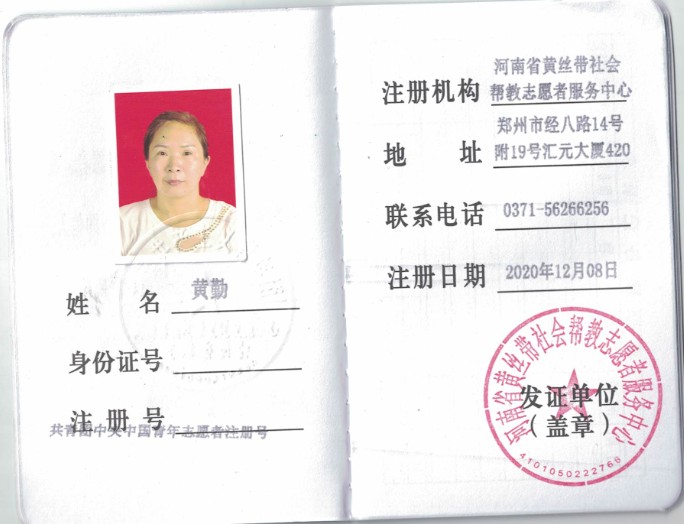 姓 名 黄勤
身份证号
注 册 号
共青团中央中国青年志愿者注册号
注册机构 河南省黄丝带社会
帮教志愿者服务中心
地 址 郑州市经八路14号
附19号汇元大厦420
联系电话 0371-56266256
注册日期 2020年12月08日
河南省黄丝带社会帮教志愿者服务中心
发证单位
（盖章）
4101050222766